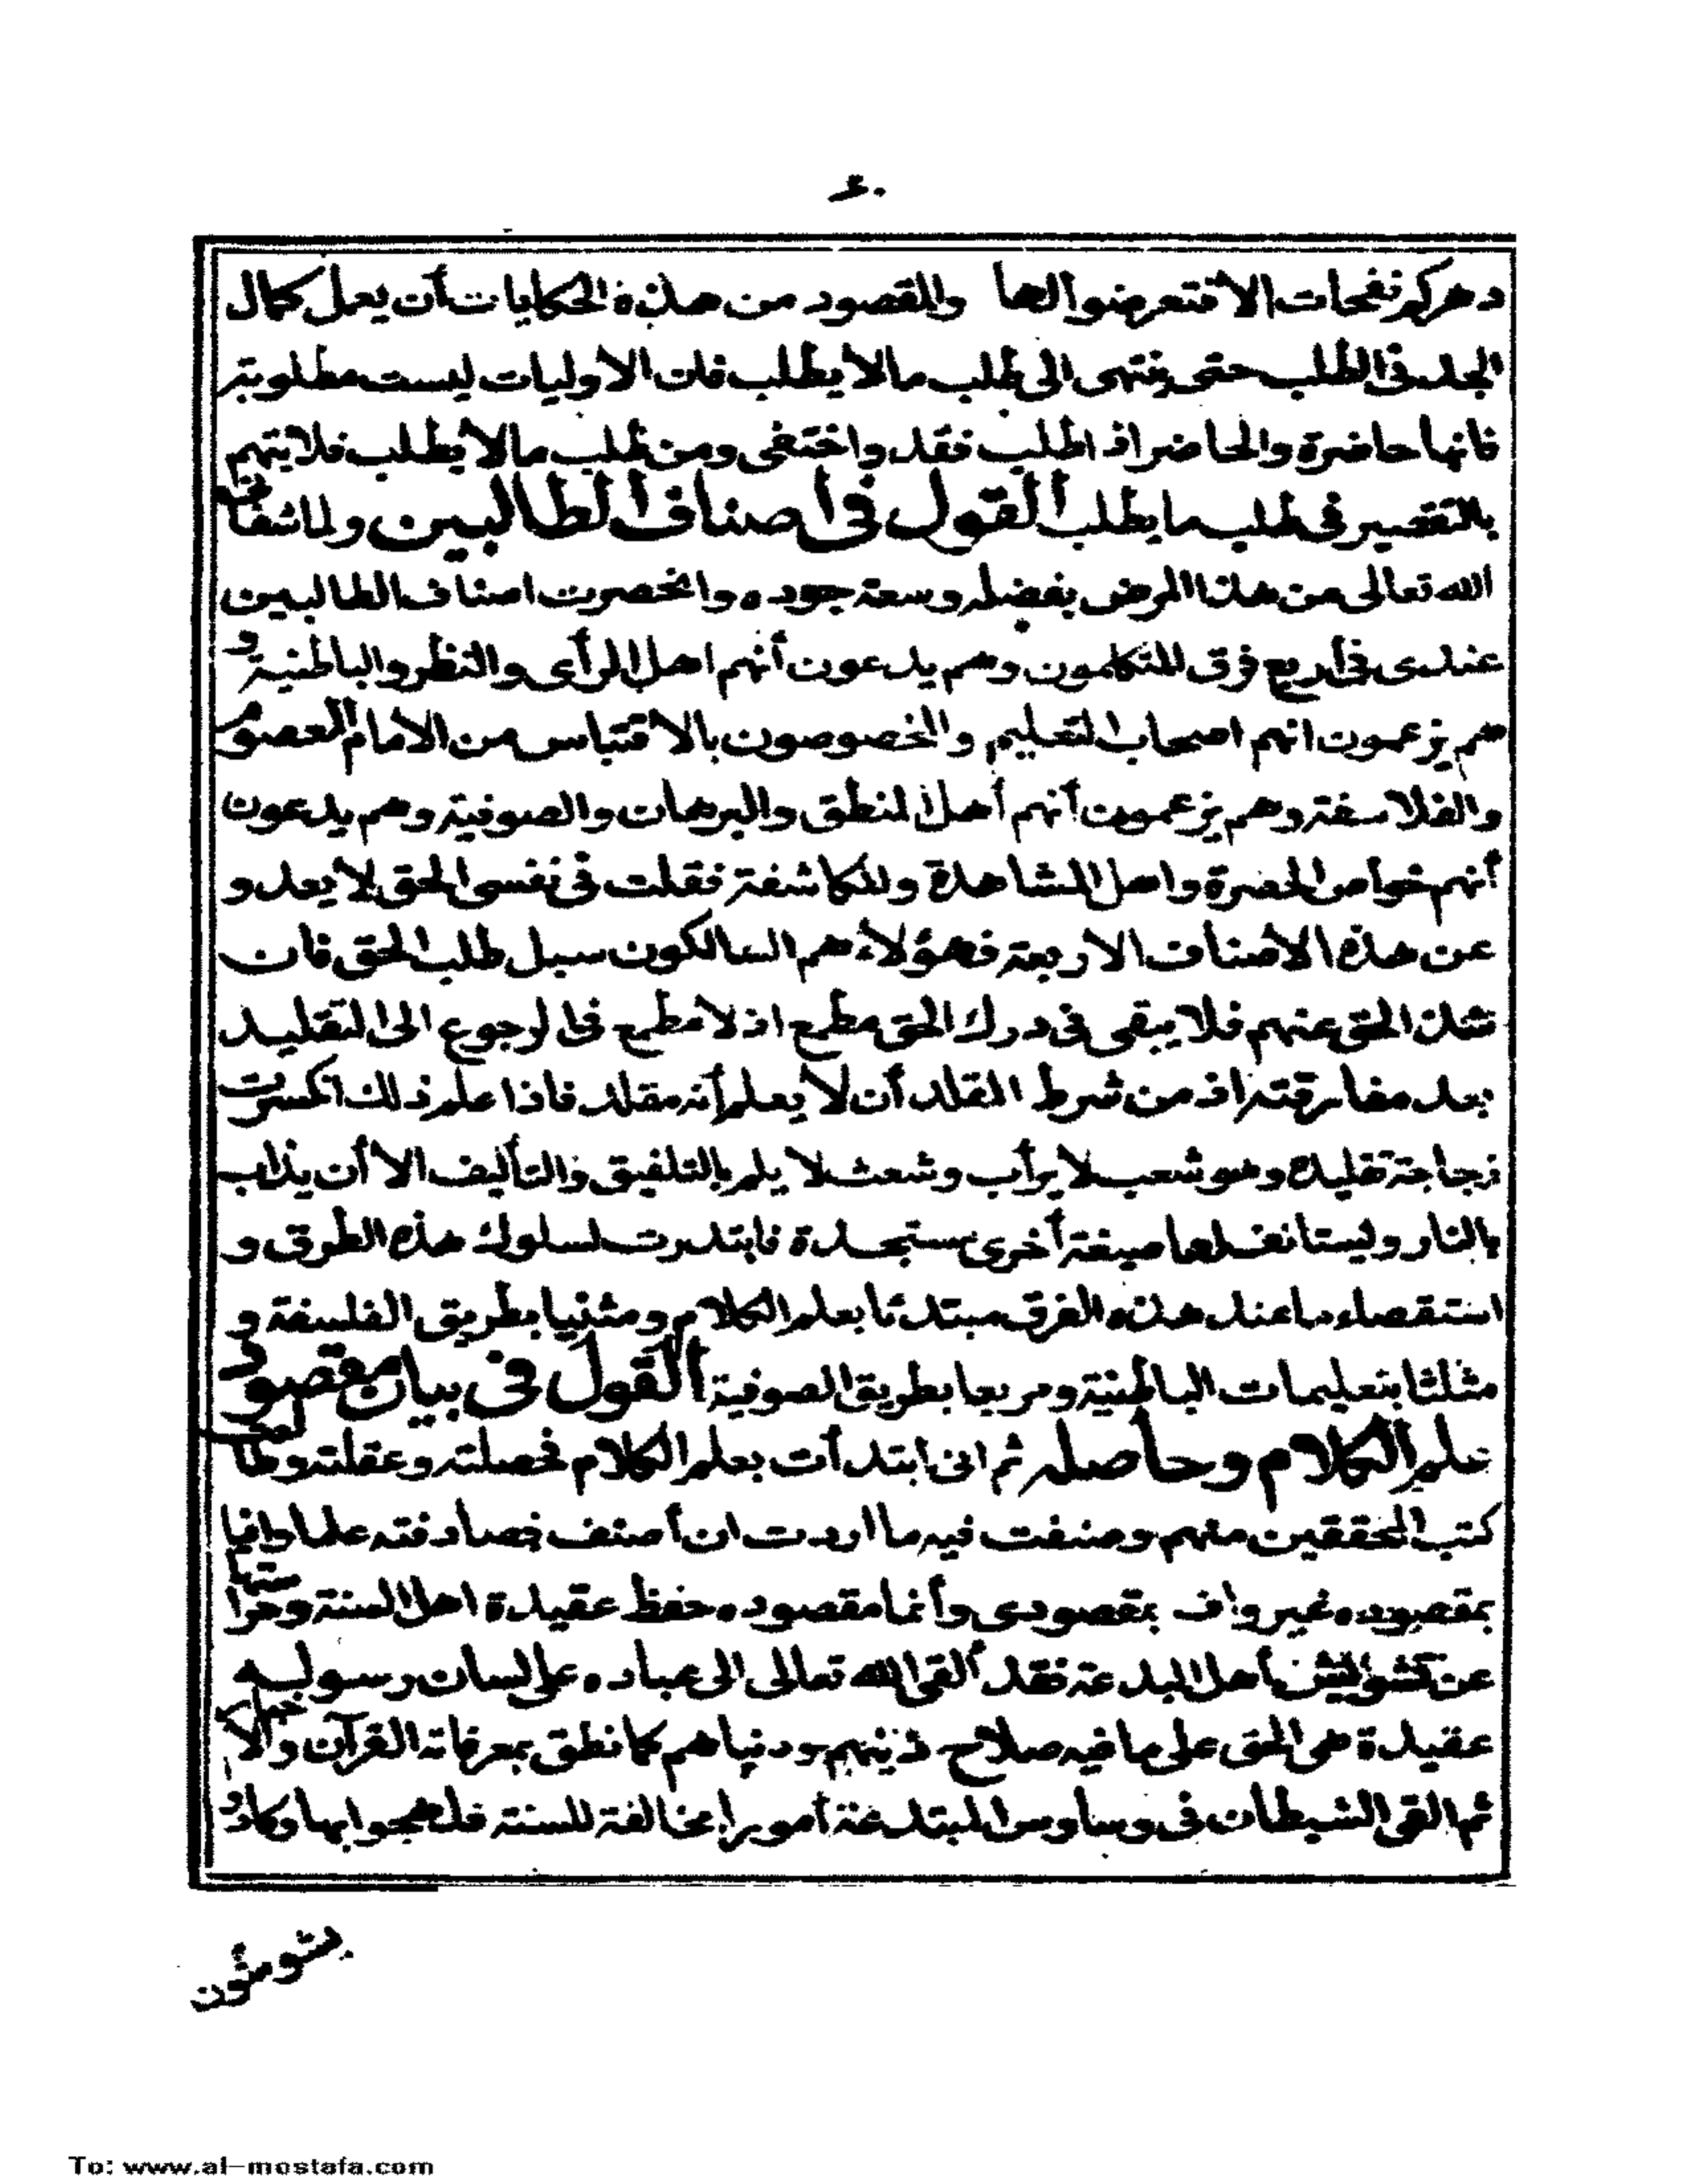 ٤٠
دهركم نفحات الا فتعرضوا لها والمقصود من هذه الحكايات أن يعمل كمال
الجد فى الطلب حتى ينتهى الى طلب مالا يطلب فان الاوليات ليست مطلوبة
فانها حاضرة والحاضر اذا طلب فقد واختفى ومن طلب مالا يطلب فلا يتهم
بالتقصير فى طلب ما يطلب القول فى أصناف الطالبين ولما شفانى
الله تعالى من هذا المرض بفضله وسعة جوده وانحصرت اصناف الطالبين
عندى فى أربع فرق المتكلمون وهم يدعون أنهم اهل الرأى والنظر والباطنية و
هم يزعمون انهم اصحاب التعليم والمخصوصون بالاقتباس من الامام المعصوم
والفلاسفة وهم يزعمون أنهم أهل المنطق والبرهان والصوفية وهم يدعون
أنهم خواص الحضرة واهل المشاهدة والمكاشفة فقلت فى نفسى الحق لا يعدو
عن هذه الاصناف الاربعة فهؤلاء هم السالكون سبل طلب الحق فان
شذ الحق عنهم فلا يبقى فى درك الحق مطمع اذ لا مطمع فى الرجوع الى التقليد
بعد مفارقته اذ من شرط المقلد أن لا يعلم أنه مقلد فاذا علم ذلك انكسرت
زجاجة تقليده وهو شعب لا يرأب وشعث لا يلم بالتلفيق والتأليف الا أن يذاب
بالنار وليستانف لها صيغة أخرى مستجدة فابتدرت لسلوك هذه الطرق و
استقصاء ما عند هذه الفرق مبتدئا بعلم الكلام ومثنيا بطريق الفلسفة و
مثلثا بتعليمات الباطنية ومربعا بطريق الصوفية القول فى بيان مقصود
علم الكلام وحاصله ثم انى ابتدأت بعلم الكلام فحصلته وعقلته وطالعت
كتب المحققين منهم وصنفت فيه ما اردت ان أصنف فصادفته علما وافيا
بمقصوده غير واف بمقصودى وأنما مقصوده حفظ عقيدة اهل السنة وحراستها
عن تشويش أهل البدعة فقد ألقى الله تعالى الى عباده على لسان رسوله
عقيدة هى الحق على ما فيه صلاح دينهم ودنياهم كما نطق بمعرفاته القرآن والاخبار
ثم القى الشيطان فى وساوس المبتدعة أمورا مخالفة للسنة فلهجوا بها وكادوا
يشوشون
To: www.al-mostafa.com